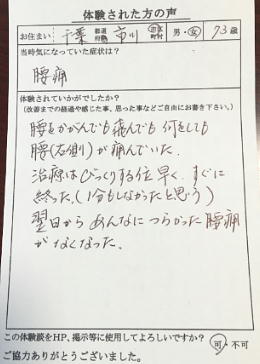 体験された方の声
お住まい 千葉 都道府県 市川 市区町村 男・女 73歳
当時気になっていた症状は?
腰痛
体験されていかがでしたか?
(改善までの経過や感じた事、思った事などご自由にお書き下さい。)
腰をかがんでも 何をしても
腰(右側)が痛んでいた。
治療はびっくりする位早く、すぐに
終った。(1分もしなかったと思う)
翌日から あんなにつらかった腰痛
がなくなった。
この体験談をHP、掲示等に使用してよろしいですか?
可・不可
ご協力ありがとうございました。